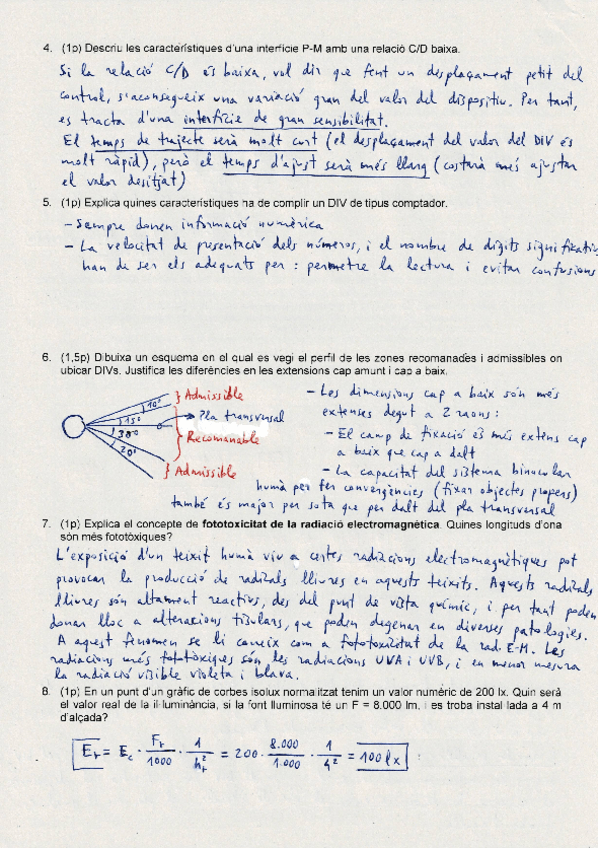 4. (1p) Descriu les característiques d'una interfície P-M amb una relació C/D baixa.
Si la relació C/D és baixa, vol dir que fent un desplaçament petit del
control, s'aconsegueix una variació gran del valor del dispositiu. Per tant,
es tracta d'una interfície de gran sensibilitat.
El temps de trajecte serà molt curt (el desplaçament del valor del DIV és
molt ràpid), però el temps d'ajust serà més llarg (costarà més ajustar
el valor desitjat)
5. (1p) Explica quines característiques ha de complir un DIV de tipus comptador.
- Sempre donen informació numèrica
- La velocitat de presentació dels números, i el nombre de dígits significatius
han de ser els adequats per: permetre la lectura i evitar confusions
6. (1,5p) Dibuixa un esquema en el qual es vegi el perfil de les zones recomanades i admissibles on
ubicar DIVs. Justifica les diferències en les extensions cap amunt i cap a baix.
10º
15º
30º
20º
Admissible
Pla transversal
Recomanable
Admissible
- Les dimensions cap a baix són més
extenses degut a 2 raons:
- El camp de fixació és més extens cap
a baix que cap a dalt
- La capacitat del sistema binocular
humà per fer convergències (fixar objectes propers)
també és major per sota que per dalt del pla transversal
7. (1p) Explica el concepte de fototoxicitat de la radiació electromagnètica. Quines longituds d'ona
són més fototòxiques?
L'exposició d'un teixit humà viu a certes radiacions electromagnètiques pot
provocar la producció de radicals lliures en aquests teixits. Aquests radicals
lliures són altament reactius, des del punt de vista químic, i per tant poden
donar lloc a alteracions tisulars, que poden degenar en diverses patologies.
A aquest fenomen se li coneix com a fototoxicitat de la rad. E-M. Les
radiacions més fototòxiques són les radiacions UVA i UVB, i en menor mesura
la radiació visible violeta i blava.
8. (1p) En un punt d'un gràfic de corbes isolux normalitzat tenim un valor numèric de 200 lx. Quin serà
el valor real de la il·luminància, si la font lluminosa té un F = 8.000 lm, i es troba instal·lada a 4 m
d'alçada?
Er = Ec · Fr/1000 · 1/hr² = 200 · 8.000/1.000 · 1/4² = 100 lx